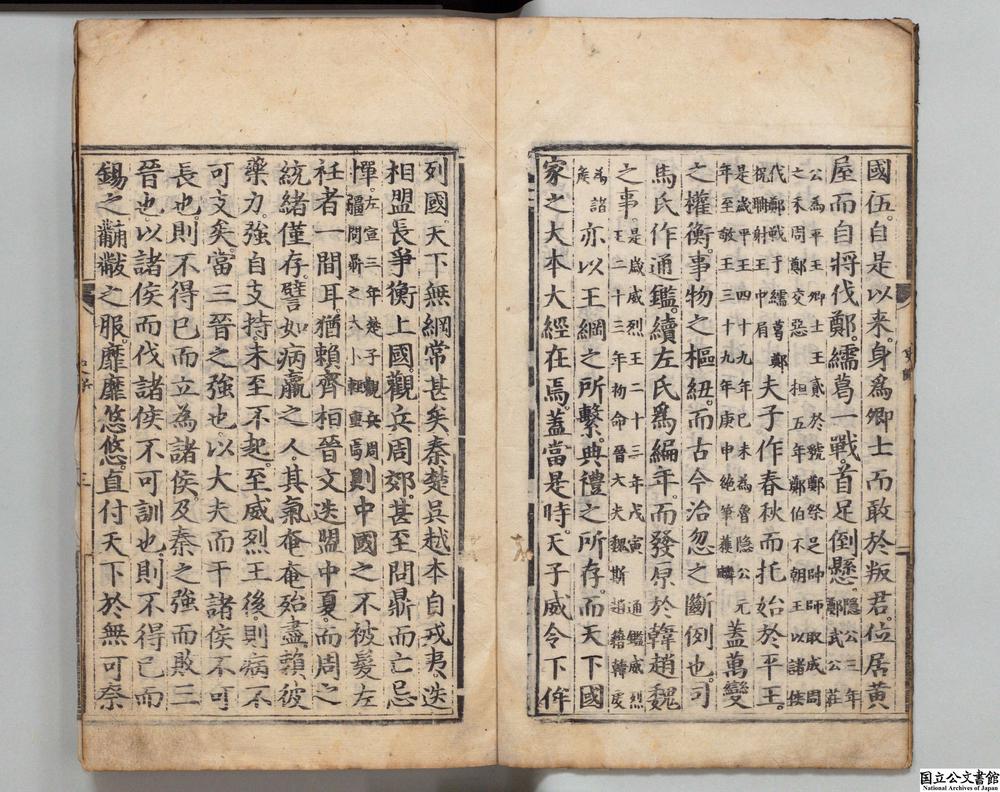 國伍。自是以来。身爲卿士而敢於叛君。位居黄
屋而自將伐鄭。繻葛一戰。首足倒懸。隱公三年鄭武公莊
公爲平王卿士王貳於虢鄭祭足帥師取成周之禾周鄭交惡桓五年鄭伯不朝王以諸侯
伐鄭戰于繻葛鄭祝聃射王中肩夫子作春秋而托始於平王。
是歲平王四十九年已未爲魯隐公元年至敬王三十九年庚申絶筆獲麟蓋萬變
之權衡。事物之樞紐。而古今治忽之斷例也。司
馬氏作通鑑。續左氏爲編年。而發原於韓趙魏
之事。是歲威烈王二十三年戊寅通鑑威烈王二十三年初命晉大夫魏斯趙藉韓虔
爲諸矦亦以王綱之所繫。典禮之所存。而天下國
家之大本大經在焉。蓋當是時。天子威令下侔
列國。天下無綱常甚矣。秦楚吳越本自戎夷。迭
相盟長。爭衡上國。觀兵周郊。甚至問鼎而亡忌
憚。左宣三年楚子觀兵周疆問鼎之大小輕重焉則中國之不被髮左
衽者一間耳。猶賴齊桓晉文迭盟中夏。而周之
統緒僅存。譬如病羸之人。其氣奄奄殆盡。賴彼
藥力。強自支持。未至不起。至威烈王後。則病不
可支矣。當三晉之強也。以大夫而干諸侯。不可
長也。則不得已而立為諸侯。及秦之強而敗三
晉也。以諸侯而伐諸侯。不可訓也。則不得已而
錫之黼黻之服。靡靡悠悠。直付天下於無可奈
国立公文書館
National Archives of Japan